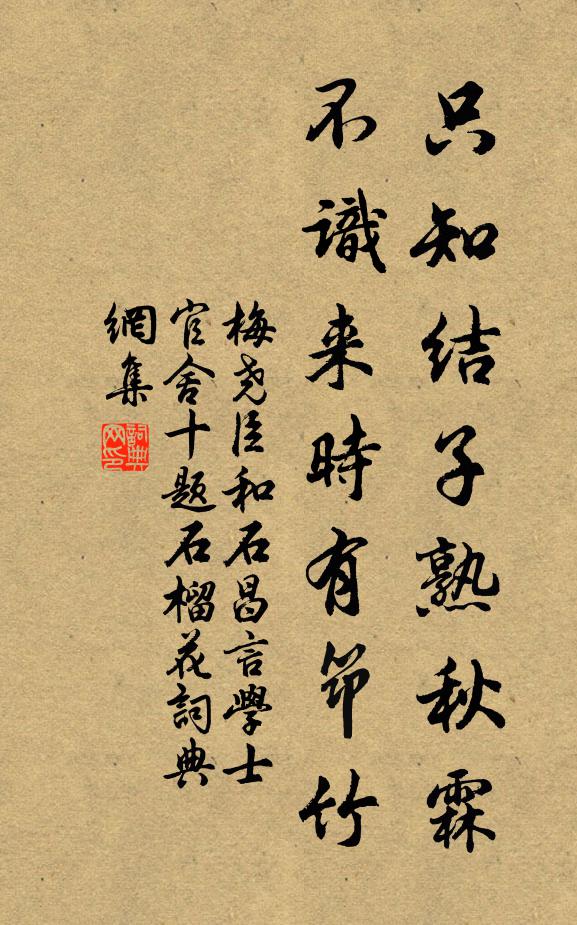 只知结子熟秋霖
不識来時有筇竹
梅尧臣和石昌言學士
官舍十题石榴花詞典
網集
詞典
网印